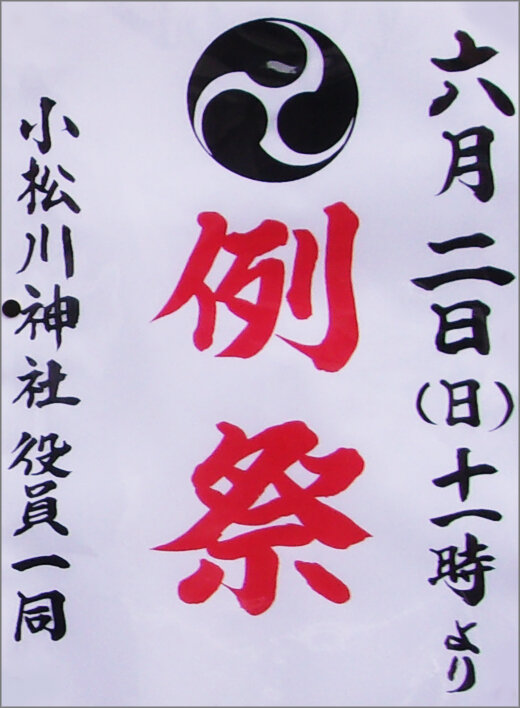 六月二日(日)十一時より
例祭
小松川神社役員一同